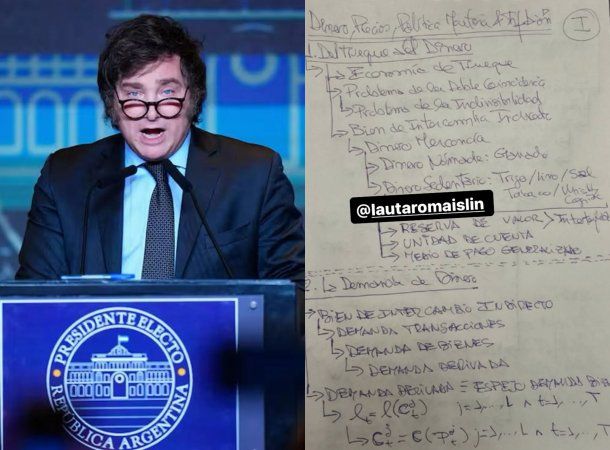 PRESIDENTE ELECTO
REPÚBLICA ARGENTINA
Dinero, Precios, Política Monetaria & Inflación
I
1. Del Trueque al Dinero
Economía de Trueque
Problema de la Doble Coincidencia
Problema de la Indivisibilidad
Bien de Intercambio Indirecto
Dinero Mercancía
Dinero Nómade: Ganado
Dinero Sedentario: Trigo/Vino/Sal
Tabaco/
@lautaromaislin
RESERVA DE VALOR
UNIDAD DE CUENTA
MEDIO DE PAGO GENERALIZADO
2. Demanda de Dinero
BIEN DE INTERCAMBIO INDIRECTO
DEMANDA TRANSACCIONES
DEMANDA DE BIENES
DEMANDA DERIVADA
DEMANDA DERIVADA = ESPEJO DEMANDA BIENES